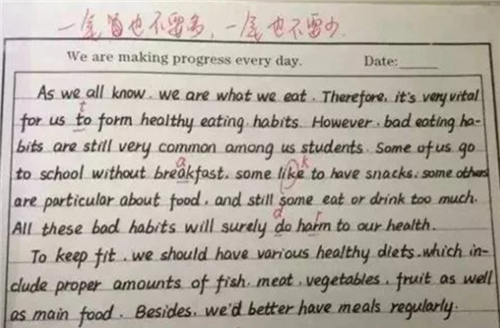 一尾曾也不要多，一尾也不要少.
We are making progress every day. Date:
As we all know, we are what we eat. Therefore, it's very vital
t
for us to form healthy eating habits. However, bad eating ha-
bits are still very common among us students. Some of us go
a k
to school without breakfast, some like to have snacks, some others
are particular about food, and still some eat or drink too much.
d r
All these bad habits will surely do harm to our health.
To keep fit, we should have various healthy diets, which in-
clude proper amounts of fish, meat, vegetables, fruit as well
as main food. Besides, we'd better have meals regularly.